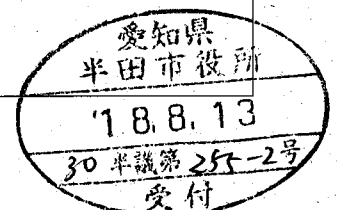 愛知県
半田市役所
'18.8.13
30半議第255-2号
受付